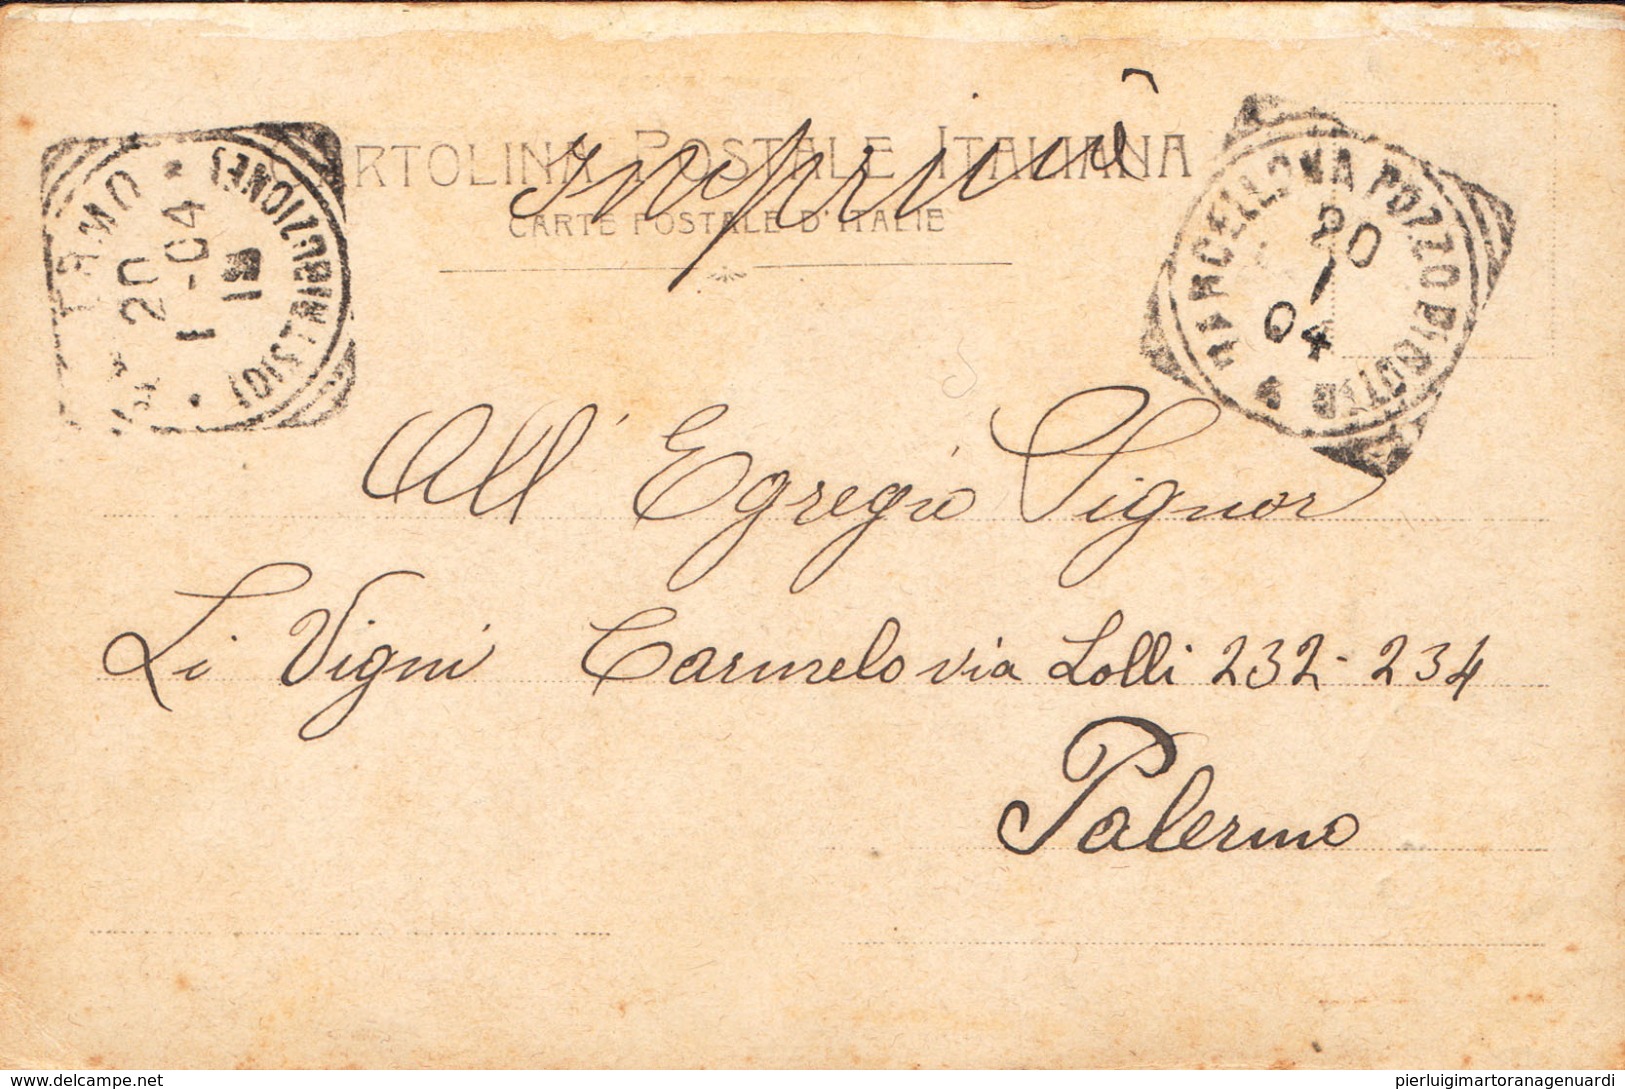 CARTOLINA POSTALE ITALIANA
CARTE POSTALE D'ITALIE
(DISTRIBUZIONE)
20
1-04
BARCELLONA POZZO DI GOTTO
20
1
04
All' Egregio Signor
Li Vigni Carmelo via Lolli 232-234
Palermo
delcampe.net
pierluigimartoranagenuardi